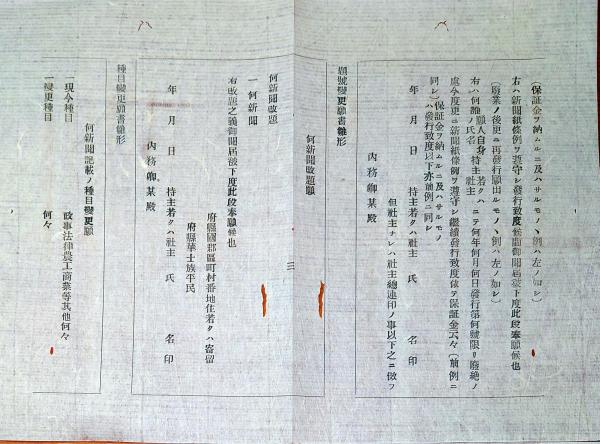 (保証金ヲ納ムルニ及ハサルモノヽ例ハ左ノ如シ)
右ハ新聞紙條例ヲ遵守シ發行致度候間御聞届被下度此段奉願候也
(廢業ノ後更ニ再發行願出ルモノヽ例ハ左ノ如シ)
右ハ何誰願人自身持主若クハ社主ノ氏名ニテ何年何月何日發行第何號限リ廢絶ノ
處今度更ニ新聞紙條例ヲ遵守シ繼續發行致度依テ保証金云々(前例ニ
同シ)(保証金ヲ納ムルニ及ハサルモノハ發行致度以下亦前例ニ同シ
但社主ナレハ社主總連印ノ事以下之ニ倣フ
年 月 日 持主若クハ社主 氏 名 印
內務卿某殿
題號變更願書雛形
何新聞改題願
何新聞改題
一 何新聞
右改題之義御聞届被下度此段奉願候也
府縣國郡區町村番地住若クハ寄留
府縣華士族平民
年 月 日 持主若クハ社主 氏 名 印
內務卿某殿
三
種目變更願書雛形
何新聞記載ノ種目變更願
一現今種目 政事法律農工商業等其他何々
一變更種目 何々